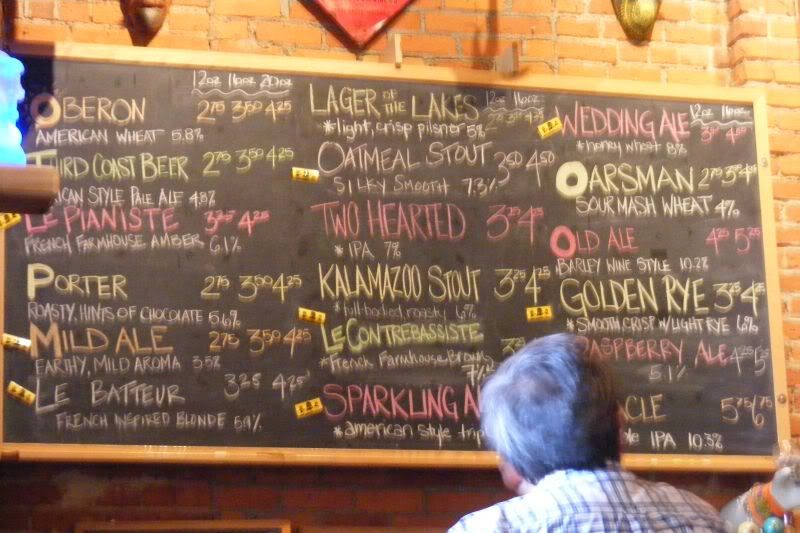 12oz 16oz 20oz
OBERON 2.75 3.50 4.25
AMERICAN WHEAT 5.8%
THIRD COAST BEER 2.75 3.50 4.25
ICAN STYLE PALE ALE 4.8%
LE PIANISTE 3.25 4.25
FRENCH FARMHOUSE AMBER 6.1%
PORTER 2.75 3.50 4.25
ROASTY, HINTS OF CHOCOLATE 5.6%
MILD ALE 2.75 3.50 4.25
EARTHY, MILD AROMA 3.5%
LE BATTEUR 3.25 4.25
FRENCH INSPIRED BLONDE 5.9%
LAGER OF THE LAKES 12oz 16oz
*light, crisp pilsner 5%
OATMEAL STOUT 3.50 4.50
SILKY SMOOTH 7.3%
TWO HEARTED 3.25 4.25
*IPA 7%
KALAMAZOO STOUT 3.25 4.25
*full-bodied roasty 6%
LE CONTREBASSISTE
*French Farmhouse Brown
SPARKLING A
*american style trip
12oz 16oz
WEDDING ALE
*honey wheat 8%
OARSMAN 2.75 3.50 4.25
SOUR MASH WHEAT 4%
OLD ALE 4.25 5.25
BARLEY WINE STYLE 10.2%
GOLDEN RYE 3.25 4.25
*SMOOTH CRISP W/LIGHT RYE 6%
RASPBERRY ALE 4.25 5.25
5.1%
ACLE 5.75 6.75
IPA 10.3%